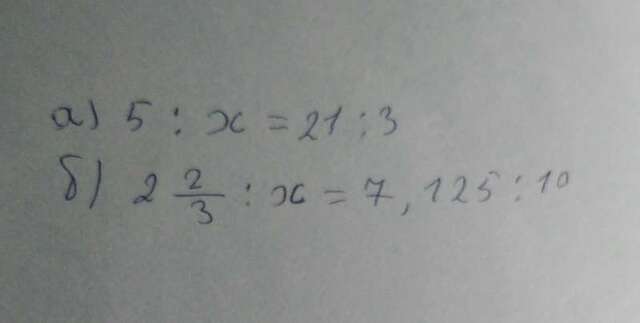 а) 5 : x = 21 : 3
б) 2 2/3 : x = 7,125 : 10